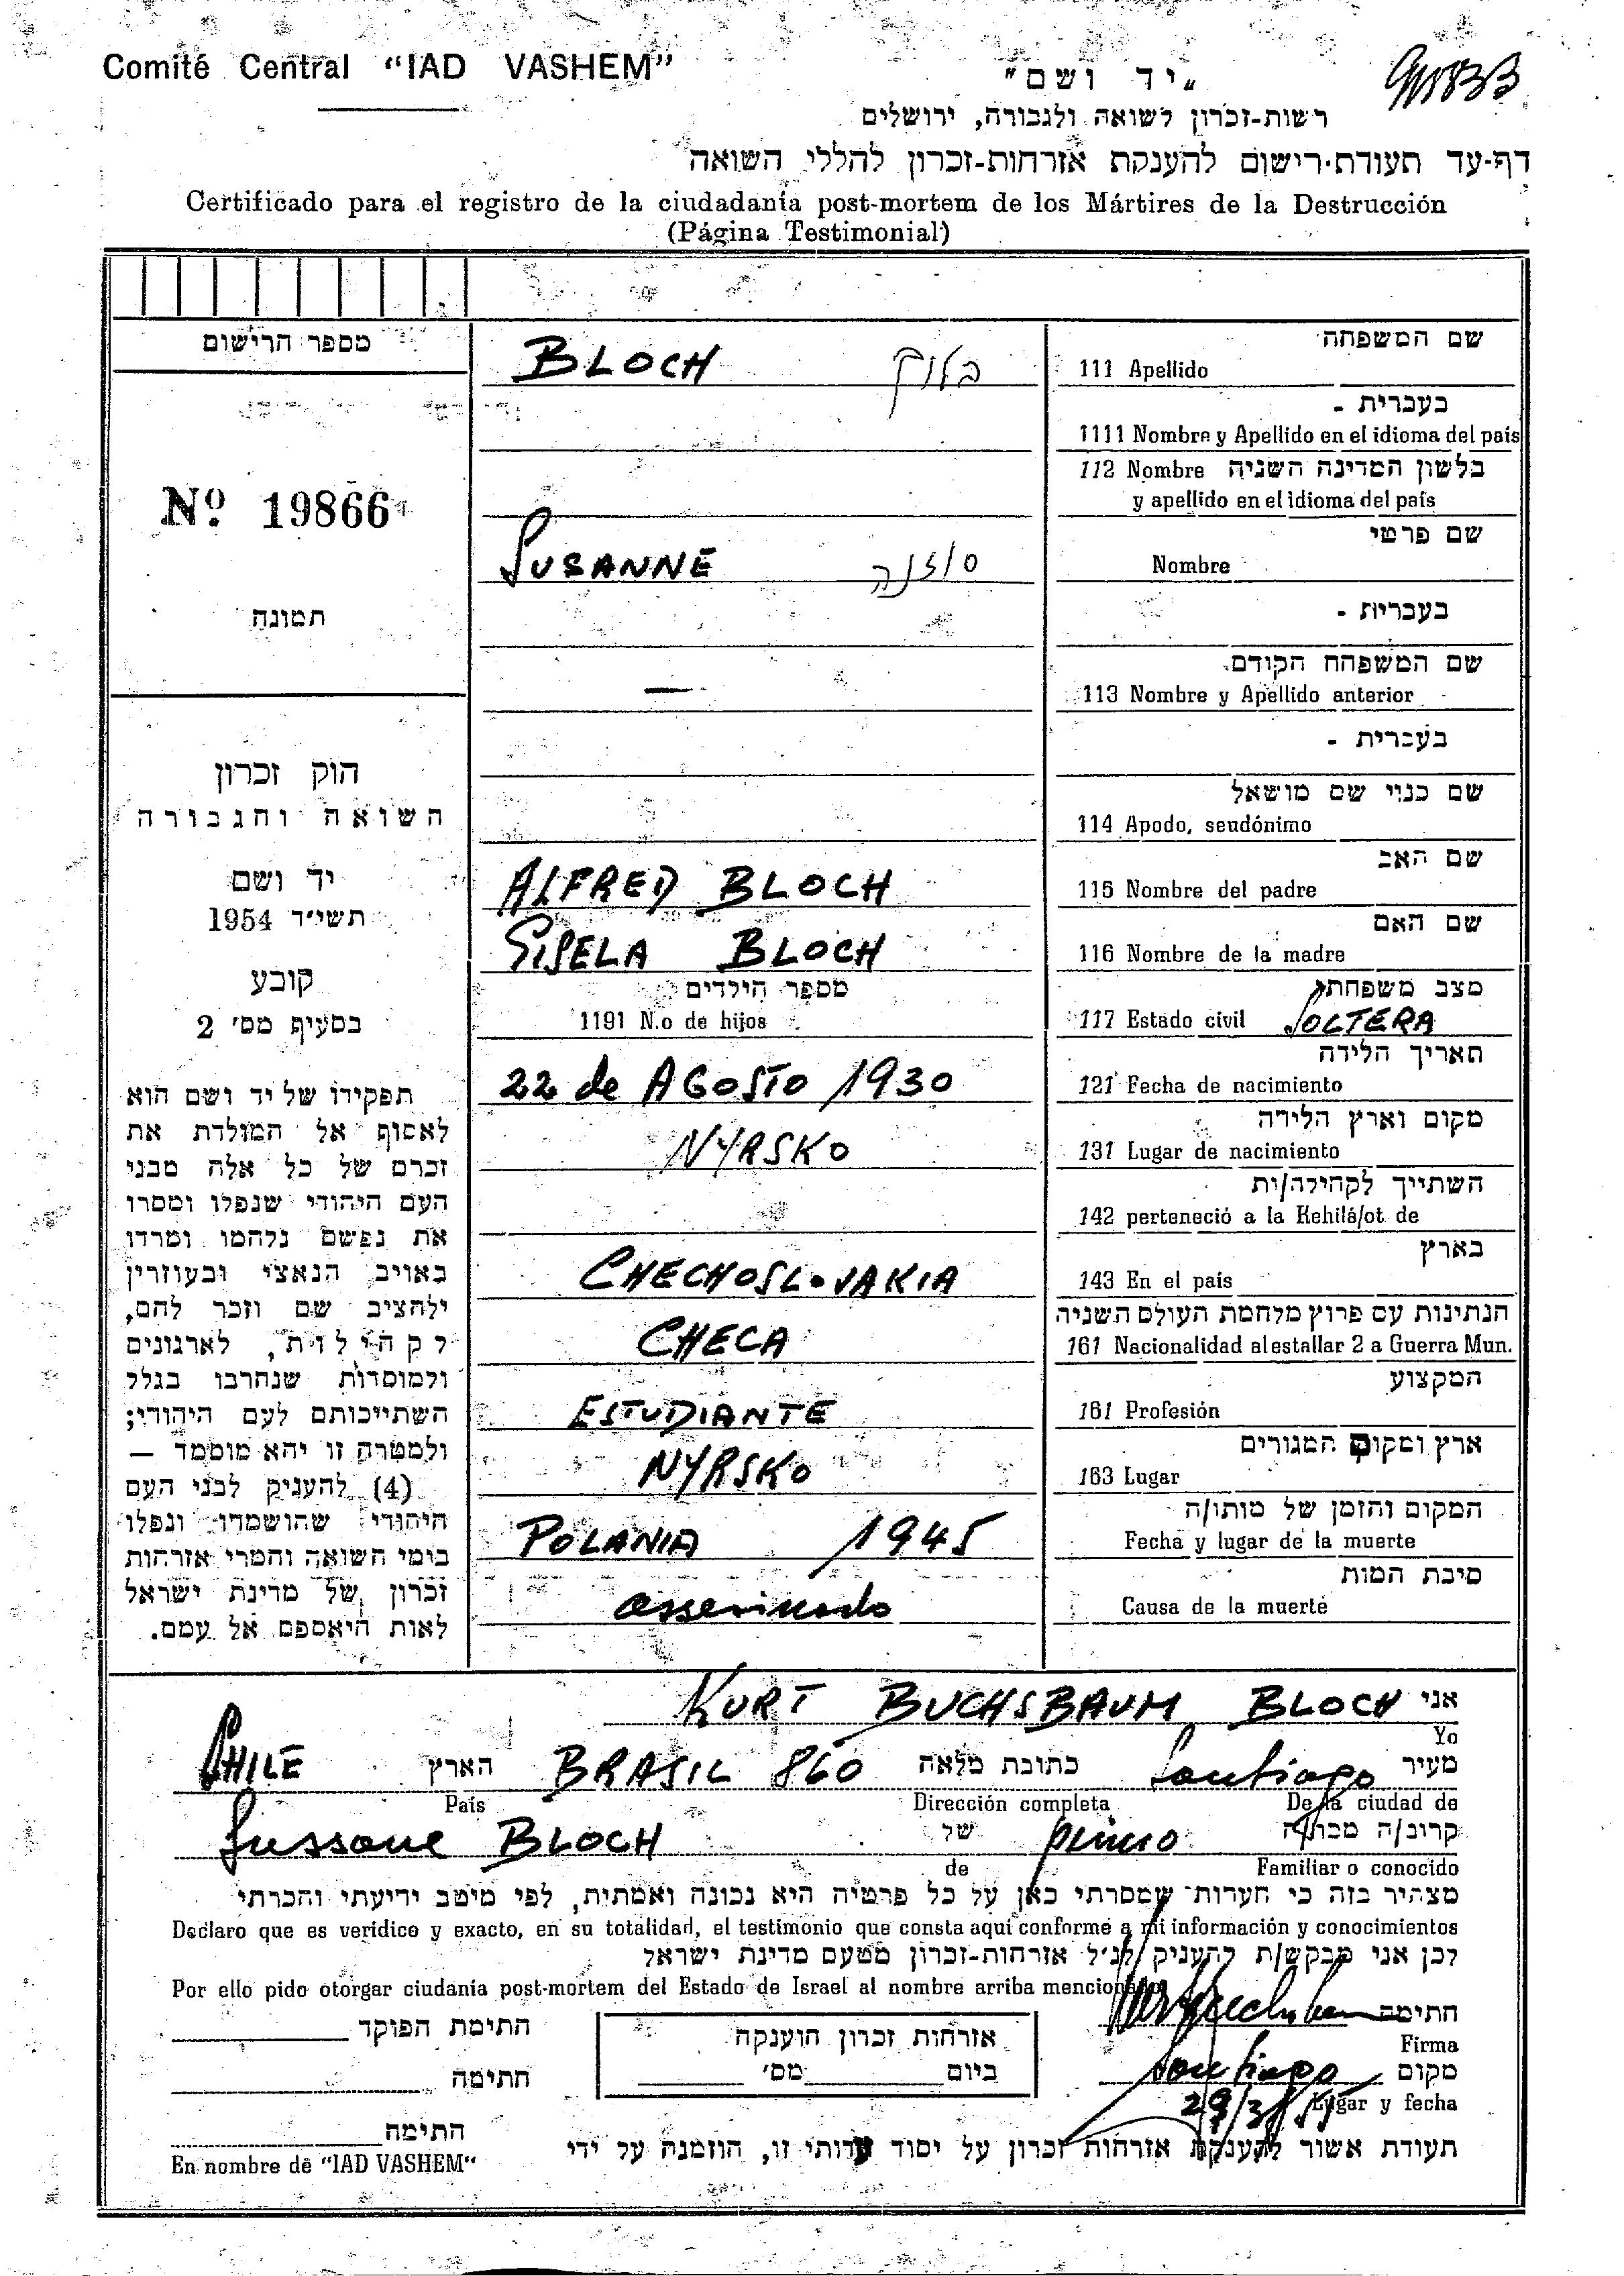 Comité Central "IAD VASHEM"
„יד ושם"
רשות-זכרון לשואה ולגבורה, ירושלים
דף-עד תעודת-רישום להענקת אזרחות-זכרון להללי השואה
Certificado para el registro de la ciudadanía post-mortem de los Mártires de la Destrucción
(Página Testimonial)
מספר הרישום
Nº 19866
תמונה
חוק זכרון
השואה והגבורה
יד ושם
תשי"ד 1954
קובע
בסעיף מס' 2
תפקידו של יד ושם הוא
לאסוף אל המולדת את
זכרם של כל אלה מבני
העם היהודי שנפלו ומסרו
את נפשם נלחמו ומרדו
באויב הנאצי ובעוזריו
ולהציב שם וזכר להם,
לקהילות, לארגונים
ולמוסדות שנחרבו בגלל
השתייכותם לעם היהודי;
ולמטרה זו יהא מוסמך —
(4) להעניק לבני העם
היהודי שהושמדו ונפלו
בימי השואה והמרי אזרחות
זכרון של מדינת ישראל
לאות היאספם אל עמם.
שם המשפחה
111 Apellido BLOCH בלוך
בעברית -
1111 Nombre y Apellido en el idioma del país
112 Nombre בלשון המדינה השניה
y apellido en el idioma del país
שם פרטי
Nombre SUSANNE סוזנה
בעברית -
שם המשפחה הקודם
113 Nombre y Apellido anterior —
בעברית -
שם כנוי שם מושאל
114 Apodo, seudónimo
שם האב
115 Nombre del padre ALFRED BLOCH
שם האם
116 Nombre de la madre GISELA BLOCH
מצב משפחתי מספר הילדים
117 Estado civil SOLTERA 1191 N.o de hijos
תאריך הלידה
121 Fecha de nacimiento 22 de AGOSTO 1930
מקום וארץ הלידה
131 Lugar de nacimiento NYRSKO
השתייך לקהילה/ות
142 perteneció a la Kehilá/ot de
בארץ
143 En el país CHECHOSLOVAKIA
הנתינות עם פרוץ מלחמת העולם השניה
161 Nacionalidad al estallar 2 a Guerra Mun. CHECA
המקצוע
161 Profesión ESTUDIANTE
ארץ ומקום המגורים
163 Lugar NYRSKO
המקום והזמן של מותו/ה
Fecha y lugar de la muerte POLANIA 1945
סיבת המות
Causa de la muerte assesinado
אני KURT BUCHSBAUM BLOCH
Yo
מעיר Santiago כתובת מלאה BRASIL 860 הארץ CHILE
De la ciudad de Dirección completa País
קרוב/ה מכר/ה primo של Sussane BLOCH
Familiar o conocido de
מצהיר בזה כי העדות שמסרתי כאן על כל פרטיה היא נכונה ואמתית, לפי מיטב ידיעתי והכרתי
Declaro que es verídico y exacto, en su totalidad, el testimonio que consta aquí conforme a mi información y conocimientos
לכן אני מבקש/ת להעניק לנ"ל אזרחות-זכרון מטעם מדינת ישראל
Por ello pido otorgar ciudadanía post-mortem del Estado de Israel al nombre arriba mencionado
חתימה
Firma
אזרחות זכרון הוענקה
ביום מס'
חתימת הפוקד
חתימה
מקום Santiago
Lugar y fecha
חתימה
En nombre de "IAD VASHEM"
תעודת אשור להענקת אזרחות זכרון על יסוד עדותי זו, הוזמנה על ידי